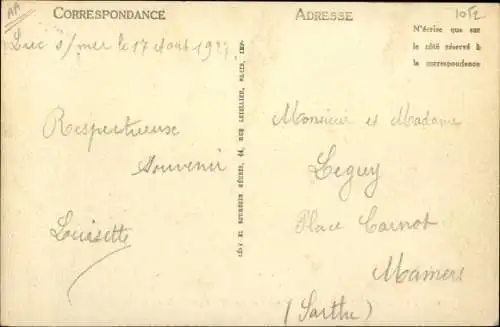 AA
CORRESPONDANCE
Luc s/mer le 17 Aout
Respectueuse
Souvenir
Louisette
LÉVY ET NEURDEIN RÉUNIS, 44, RUE LETELLIER, PARIS, IMP.
ADRESSE
N'écrire que sur
le côté réservé à
la correspondance
Monsieur et Madame
Leguy
Place Carnot
Mamers
(Sarthe)